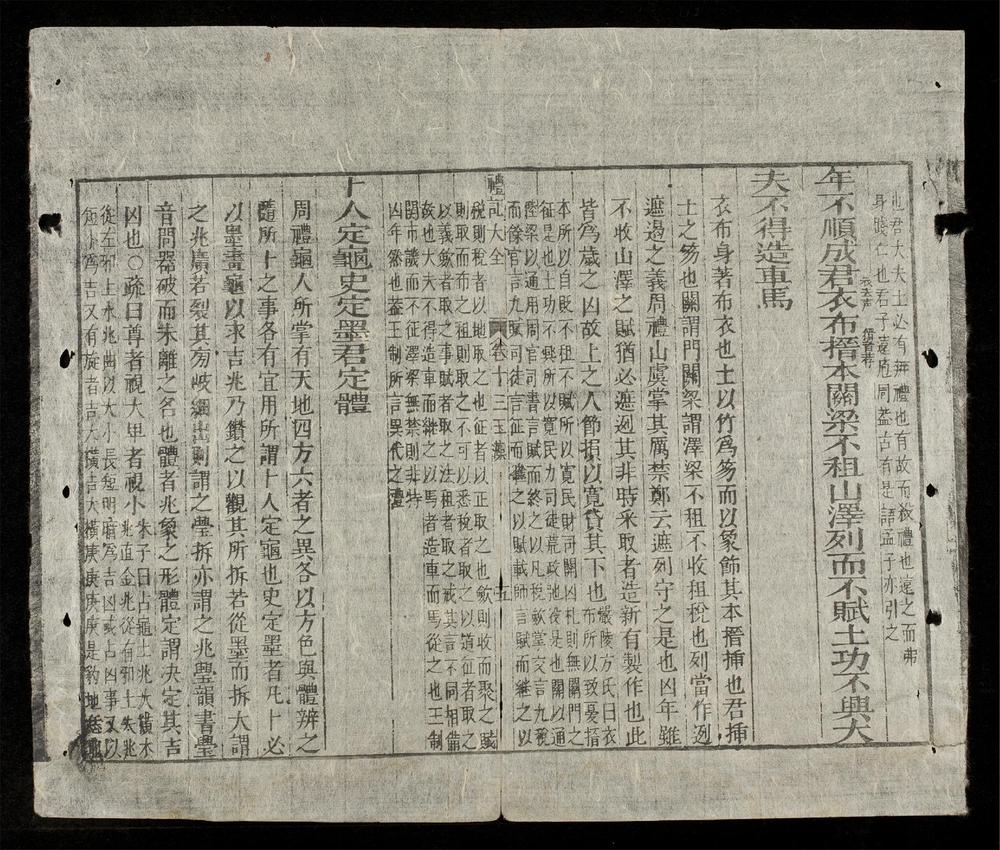 也君大夫士必有無禮也有故而殺禮也遠之而弗
身踐之也君子遠庖周蓋古有是語孟子亦引之
年不順成君衣布搢本關梁不租山澤列而不賦土功不興大
夫不得造車馬
衣布身著布衣也士以竹爲笏而以象飾其本搢揷也君揷
士之笏也關謂門關梁謂澤梁不租不收租稅也列當作迾
遮遏之義周禮山虞掌其厲禁鄭云遮列守之是也凶年雖
不收山澤之賦猶必遮迾其非時采取者造新有製作也此
皆爲歲之凶故上之人節損以寬貸其下也
嚴陵方氏曰衣
布所以致憂搢
本所以自貶不租不賦所以寬民財司關凶札則無關門之
征是也土功不興所以寬民力司徒荒政弛役是也關以通
塗梁以通用周官司書言賦而終之以凡稅斂掌交言九稅
而餘官言九賦司徒言征而繼之以賦載師言賦而繼之以
稅則稅者以地取之也征者以正取之也斂則收而聚之賦
則取而布之租則取之不可以悉稅者取之以道征者取之
以義斂者取之事賦者取之法租者取之戒其言不同相備
故也大夫不得造車而繼之以馬者造車而馬從之也王制
關市譏而不征澤梁無禁則非特
凶年然也蓋王制所言異代之禮
禮記大全 卷十三玉藻 五
卜人定龜史定墨君定體
周禮龜人所掌有天地四方六者之異各以方色與體辨之
隨所卜之事各有宜用所謂卜人定龜也史定墨者凡卜必
以墨畫龜以求吉兆乃鑽之以觀其所拆若從墨而拆大謂
之兆廣若裂其旁岐細出則謂之璺拆亦謂之兆璺韻書璺
音問器破而未離之名也體者兆象之形體定謂決定其吉
凶也○疏曰尊者視大卑者視小
朱子曰占龜土兆大橫木
兆直金兆從右邪上火兆
從左邪上水兆曲以大小長短明暗爲吉凶或占凶事又以
短小爲吉又有旋者吉大橫吉大橫庚庚庚是豹地恁地